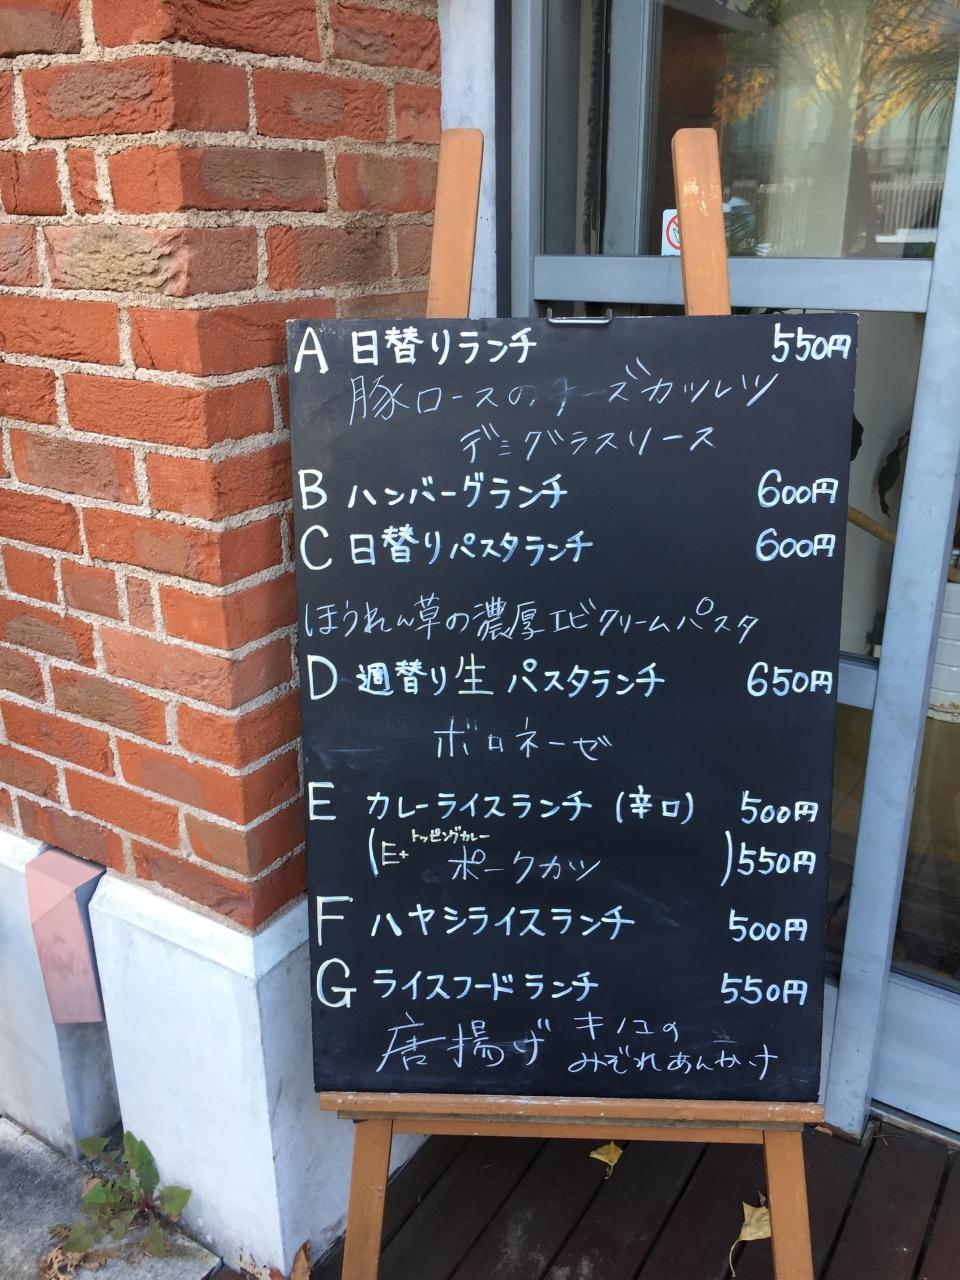 A 日替りランチ 550円
豚ロースのチーズカツレツ
デミグラスソース
B ハンバーグランチ 600円
C 日替りパスタランチ 600円
ほうれん草の濃厚エビクリームパスタ
D 週替り生パスタランチ 650円
ボロネーゼ
E カレーライスランチ (辛口) 500円
トッピングカレー
(E+ ポークカツ ) 550円
F ハヤシライスランチ 500円
G ライスフードランチ 550円
唐揚げ キノコの
みぞれあんかけ